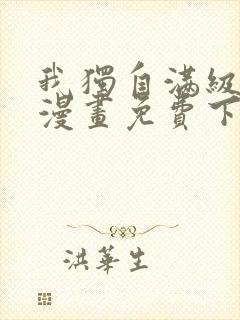 我獨自滿級
漫畫免費下
洪華生